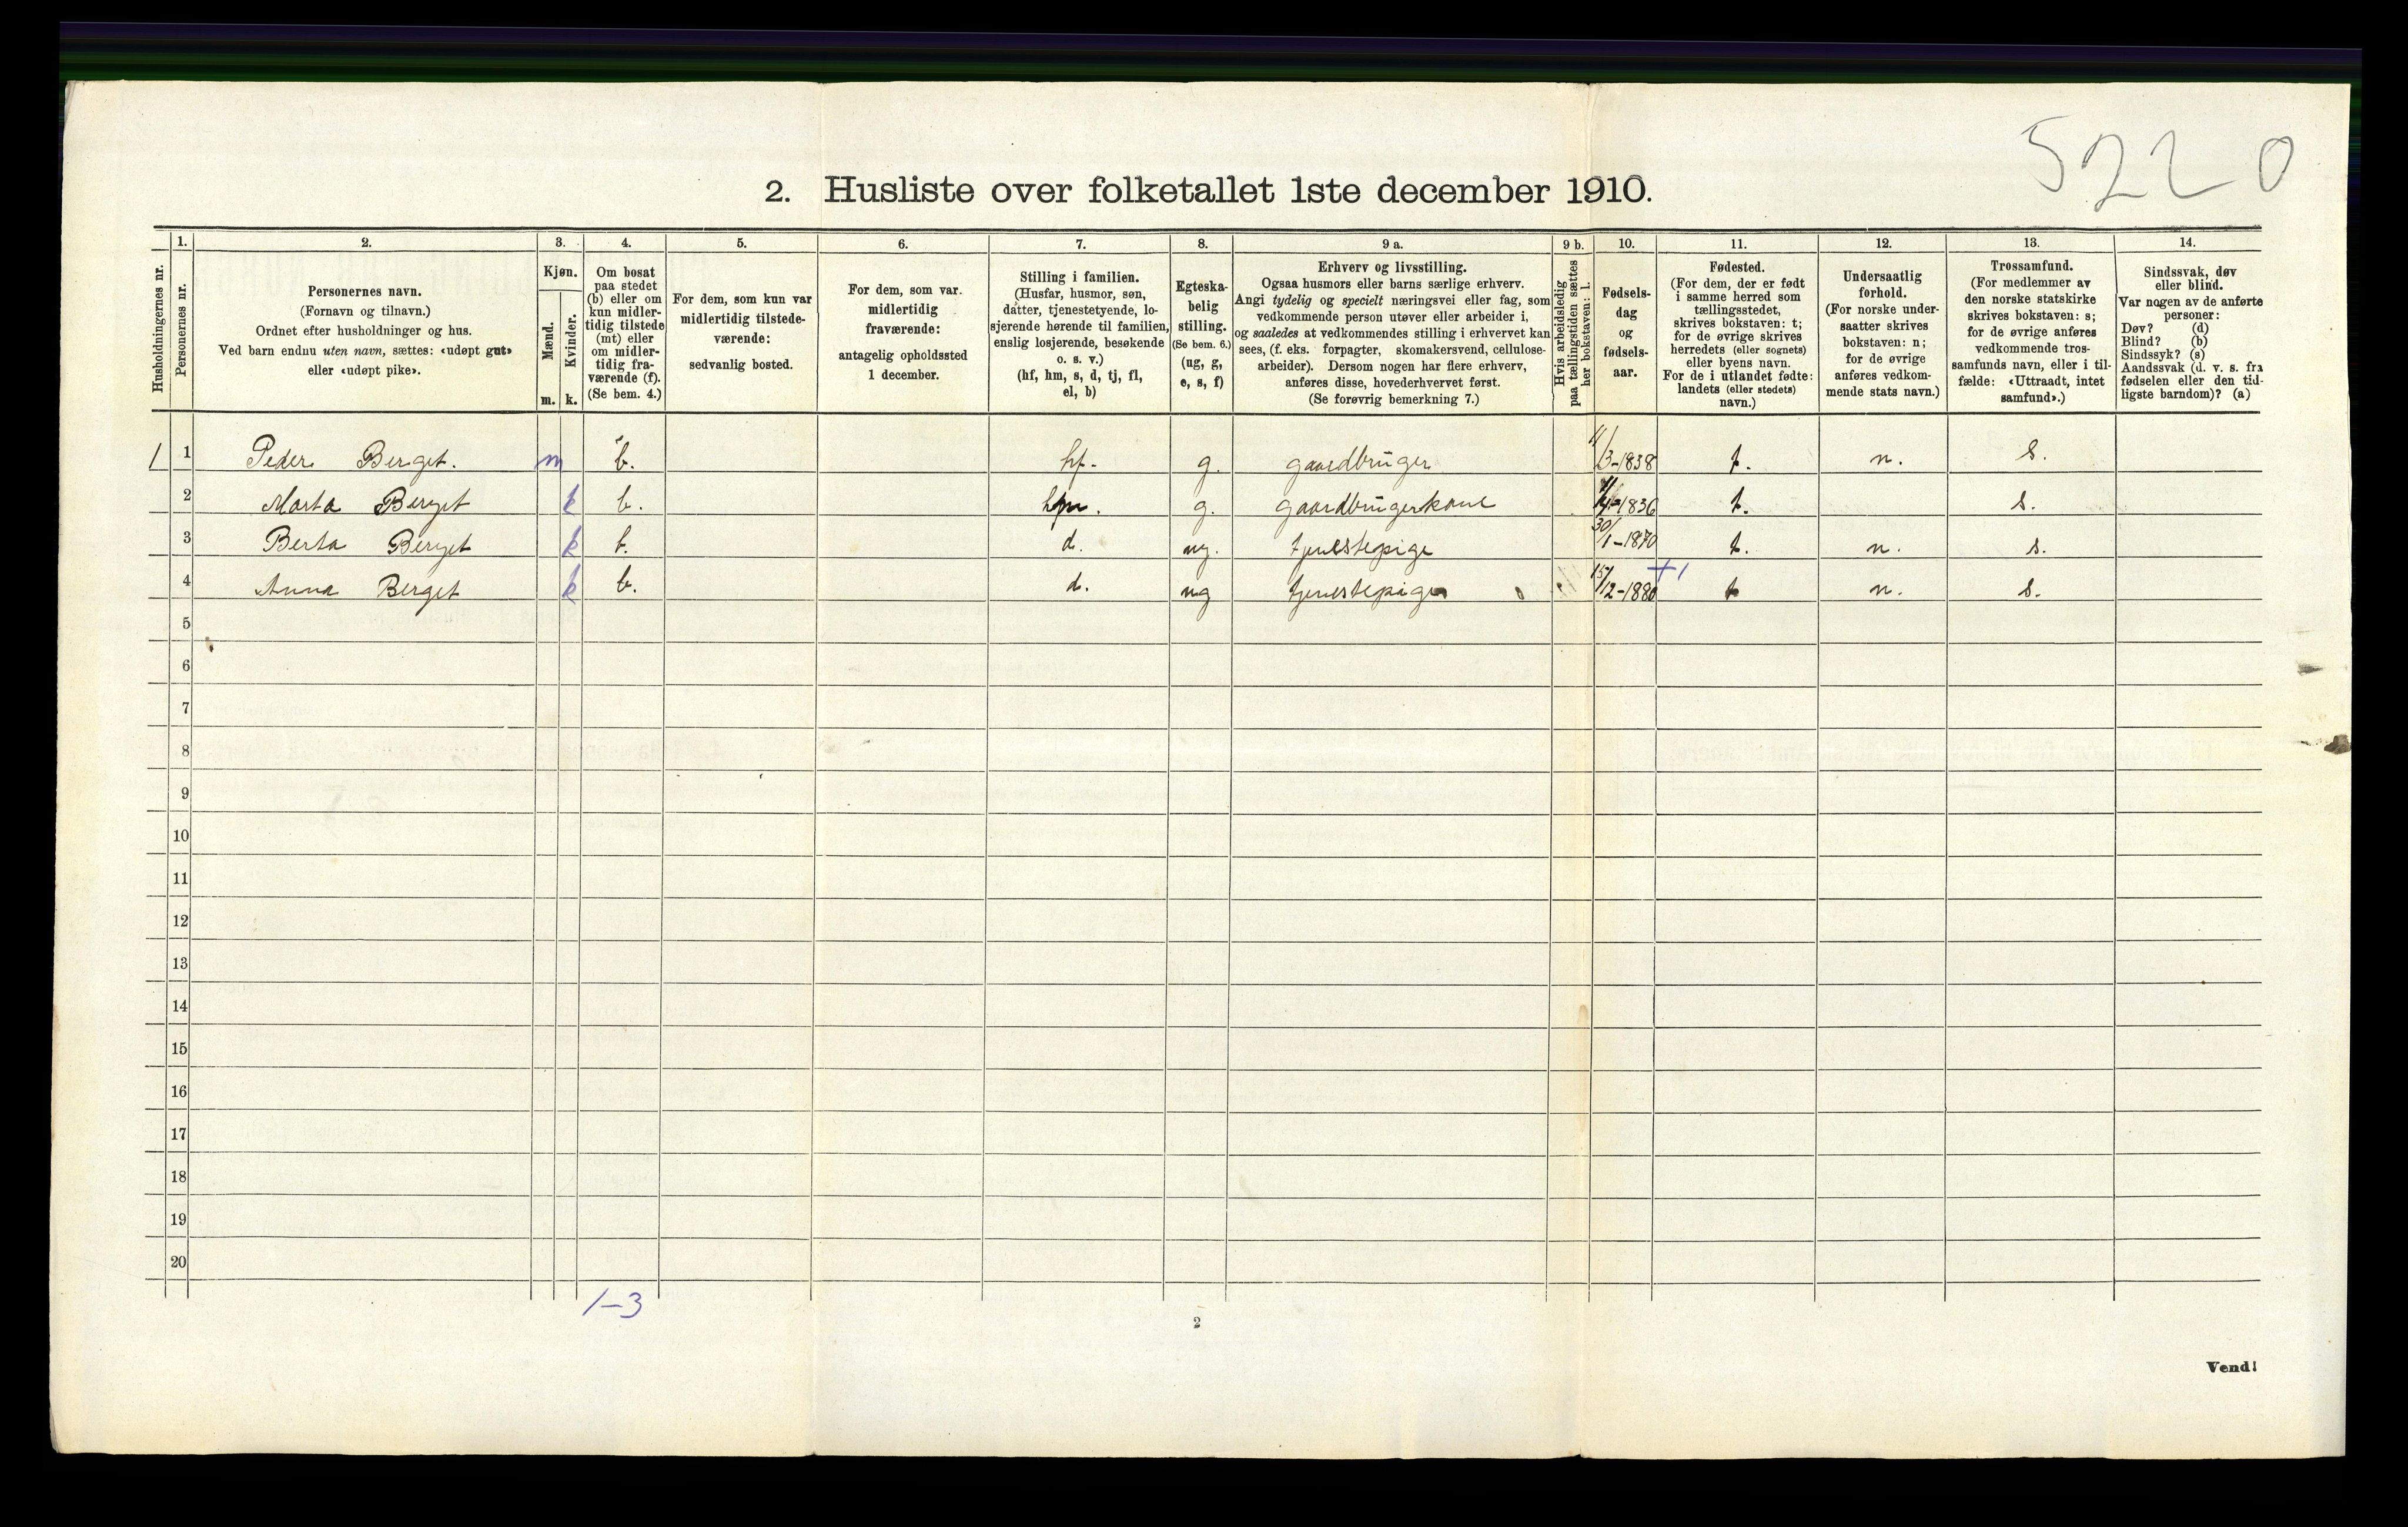 5220
2. Husliste over folketallet 1ste december 1910.
Husholdningernes nr.
1.
Personernes nr.
2.
Personernes navn.
(Fornavn og tilnavn.)
Ordnet efter husholdninger og hus.
Ved barn endnu uten navn, sættes: «udøpt gut»
eller «udøpt pike».
3.
Kjøn.
Mænd.
Kvinder.
m. k.
4.
Om bosat
paa stedet
(b) eller om
kun midler-
tidig tilstede
(mt) eller
om midler-
tidig fra-
værende (f).
(Se bem. 4.)
5.
For dem, som kun var
midlertidig tilstede-
værende:
sedvanlig bosted.
6.
For dem, som var
midlertidig
fraværende:
antagelig opholdssted
1 december.
7.
Stilling i familien.
(Husfar, husmor, søn,
datter, tjenestetyende, lo-
sjerende hørende til familien,
enslig losjerende, besøkende
o. s. v.)
(hf, hm, s, d, tj, fl,
el, b)
8.
Egteska-
belig
stilling.
(Se bem. 6.)
(ug, g,
e, s, f)
9 a.
Erhverv og livsstilling.
Ogsaa husmors eller barns særlige erhverv.
Angi tydelig og specielt næringsvei eller fag, som
vedkommende person utøver eller arbeider i,
og saaledes at vedkommendes stilling i erhvervet kan
sees, (f. eks. forpagter, skomakersvend, cellulose-
arbeider). Dersom nogen har flere erhverv,
anføres disse, hovederhvervet først.
(Se forøvrig bemerkning 7.)
9 b.
Hvis arbeidsledig
paa tællingstiden sættes
her bokstaven: l.
10.
Fødsels-
dag
og
fødsels-
aar.
11.
Fødested.
(For dem, der er født
i samme herred som
tællingsstedet,
skrives bokstaven: t;
for de øvrige skrives
herredets (eller sognets)
eller byens navn.
For de i utlandet fødte:
landets (eller stedets)
navn.)
12.
Undersaatlig
forhold.
(For norske under-
saatter skrives
bokstaven: n;
for de øvrige
anføres vedkom-
mende stats navn.)
13.
Trossamfund.
(For medlemmer av
den norske statskirke
skrives bokstaven: s;
for de øvrige anføres
vedkommende tros-
samfunds navn, eller i til-
fælde: «Uttraadt, intet
samfund».)
14.
Sindssvak, døv
eller blind.
Var nogen av de anførte
personer:
Døv? (d)
Blind? (b)
Sindssyk? (s)
Aandssvak (d. v. s. fra
fødselen eller den tid-
ligste barndom)? (a)
1 1 Peder Berget. m b. hf. g. gaardbruger 11/3-1838 t. n. s.
2 Marta Berget k b. hm. g. gaardbrugerkone 11/4-1836 t. s.
3 Berta Berget k b. d. ug. tjenestepige 30/1-1870 t. n. s.
4 Anna Berget k b. d. ug tjenestepige 15/12-1880 +1 t n. s.
5
6
7
8
9
10
11
12
13
14
15
16
17
18
19
20
1-3
2
Vend!